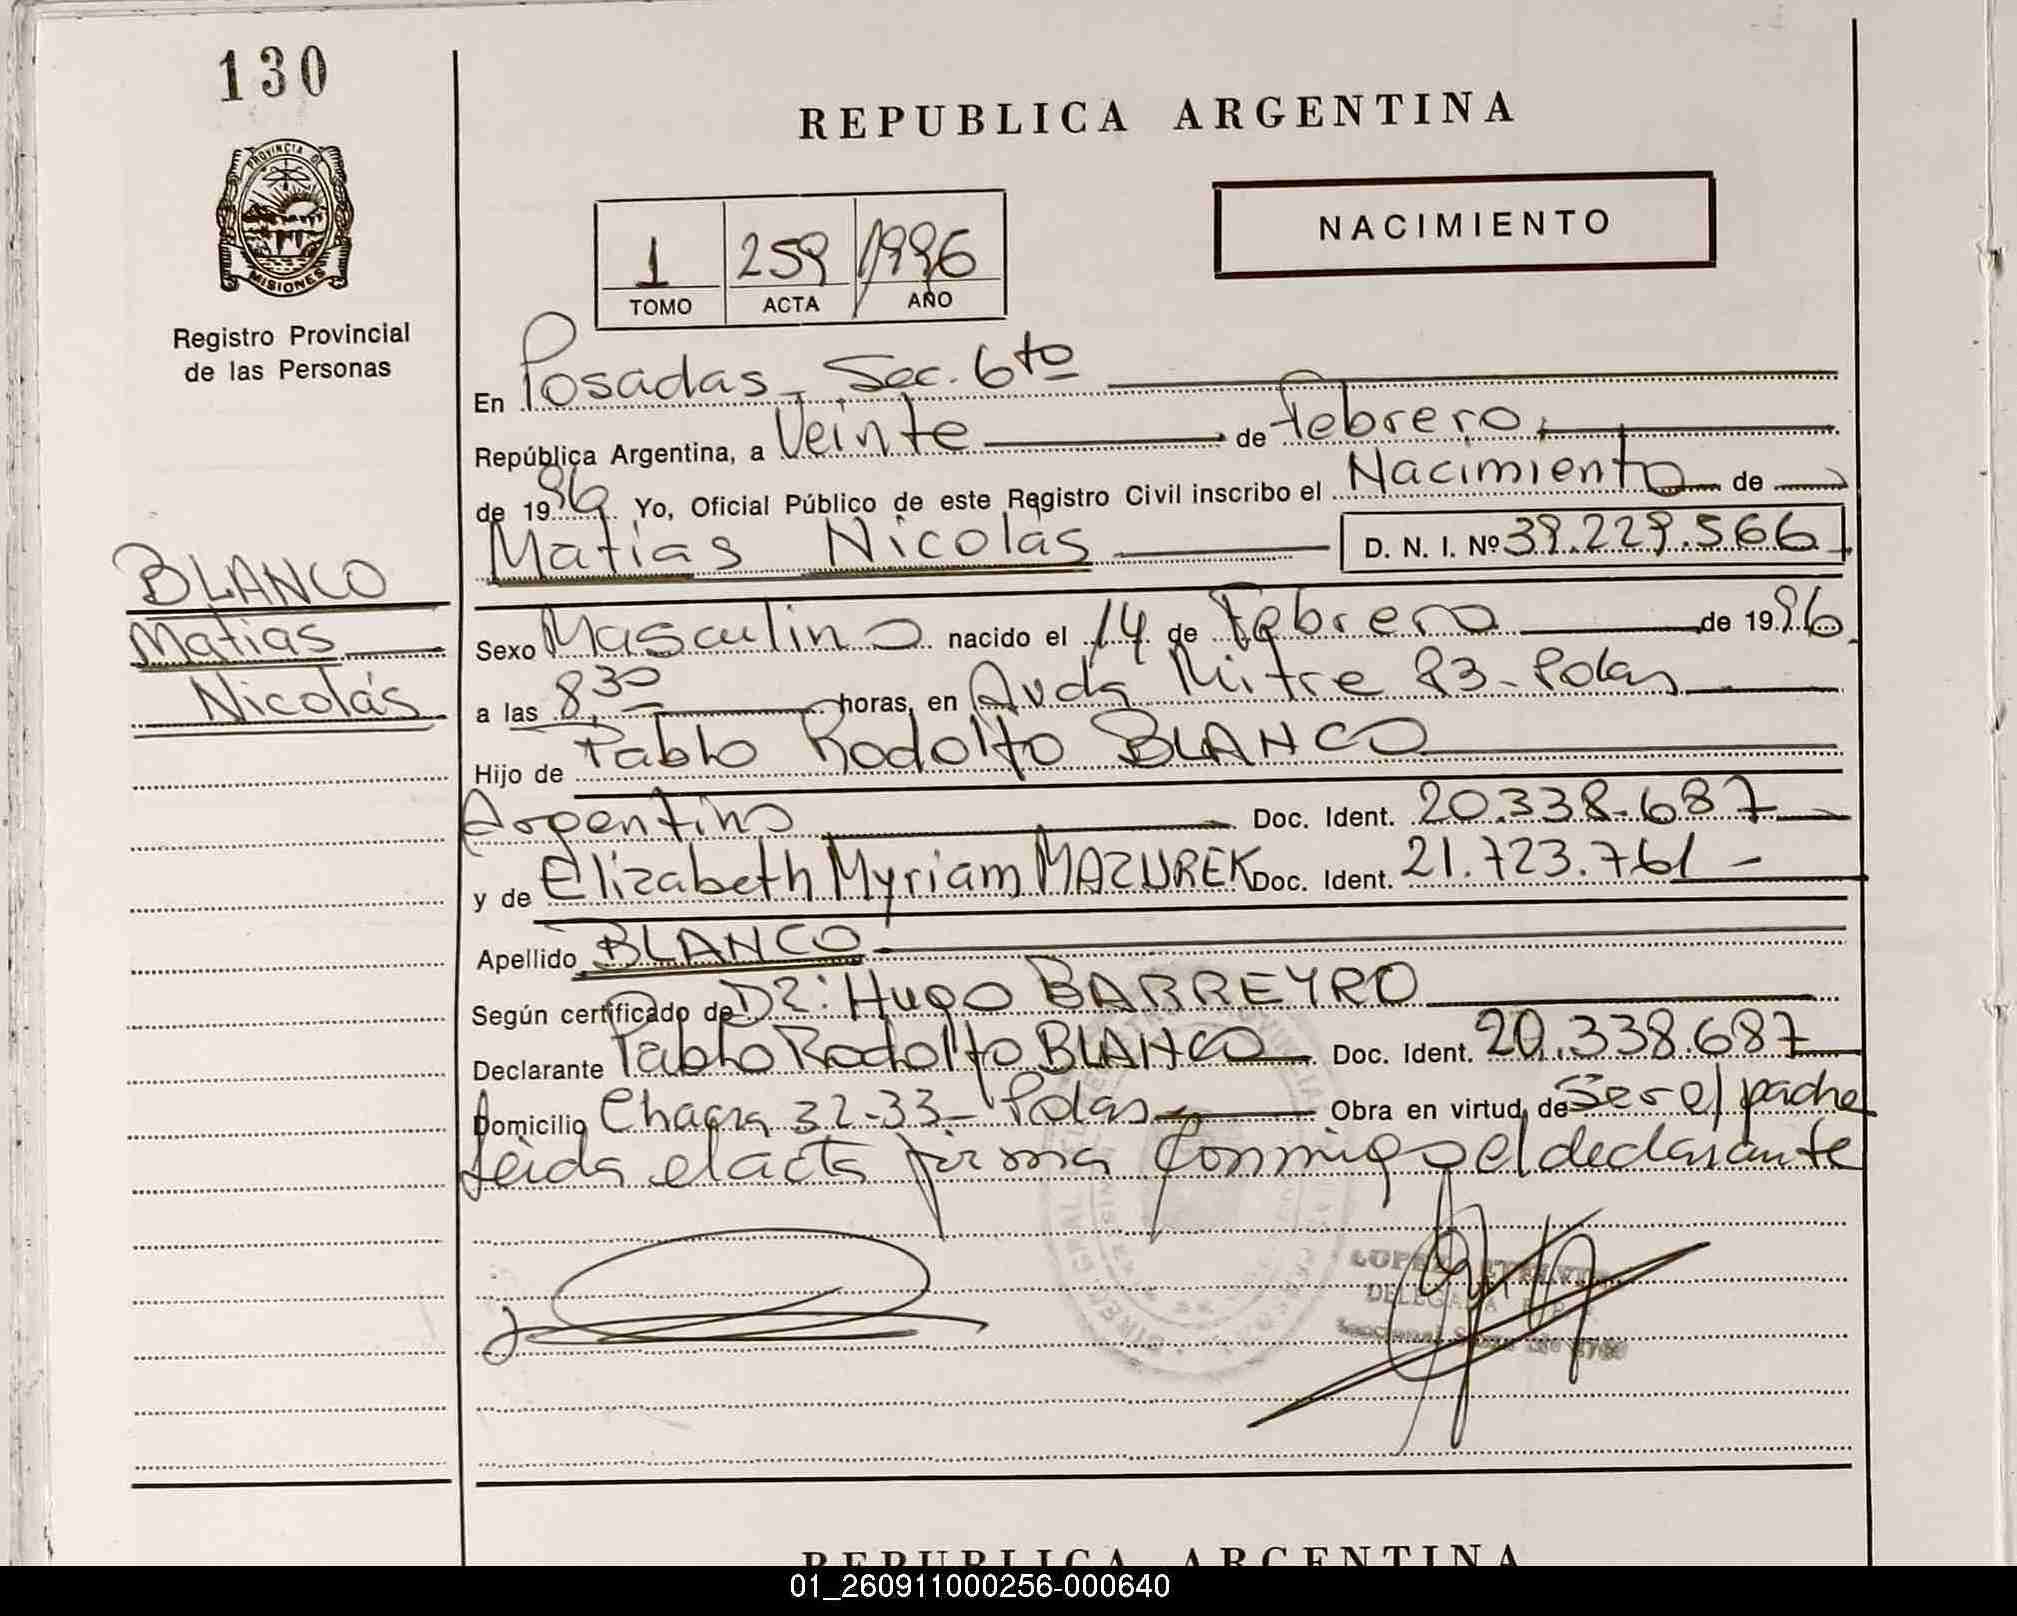 130
REPUBLICA ARGENTINA
PROVINCIA DE
MISIONES
NACIMIENTO
1 259 1996
TOMO ACTA AÑO
Registro Provincial
de las Personas
En Posadas - Sec. 6to
República Argentina, a Veinte de Febrero
de 1996 Yo, Oficial Público de este Registro Civil inscribo el Nacimiento de
Matias Nicolas D. N. I. Nº 39.229.566
BLANCO
Matias
Nicolás
Sexo Masculino nacido el 14 de Febrero de 1996
a las 8,30 horas, en Avda Mitre 83 - Pdas
Hijo de Pablo Rodolfo BLANCO
Argentino Doc. Ident. 20.338.687
y de Elizabeth Myriam MAZUREK Doc. Ident. 21.723.761 -
Apellido BLANCO
Según certificado de Dr: Hugo BARREYRO
Declarante Pablo Rodolfo BLANCO Doc. Ident. 20.338.687
Domicilio Chacra 32-33 - Pdas Obra en virtud de Ser el padre
Leida el acta firma conmigo el declarante
LOPEZ
DELEGADA
REPUBLICA ARGENTINA
01_260911000256-000640